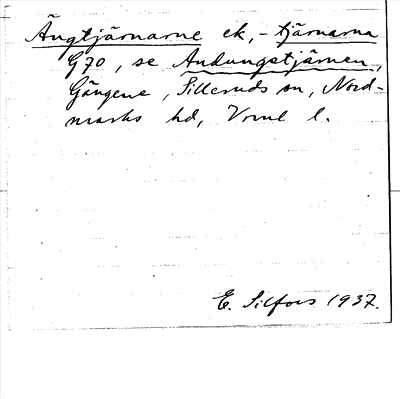 Ängtjärnarne ek, - tjärnarna
G70, se Andungstjärnen,
Gängene, Silleruds sn, Nord-
marks hd, Vrml l.
E. Silfors 1937.